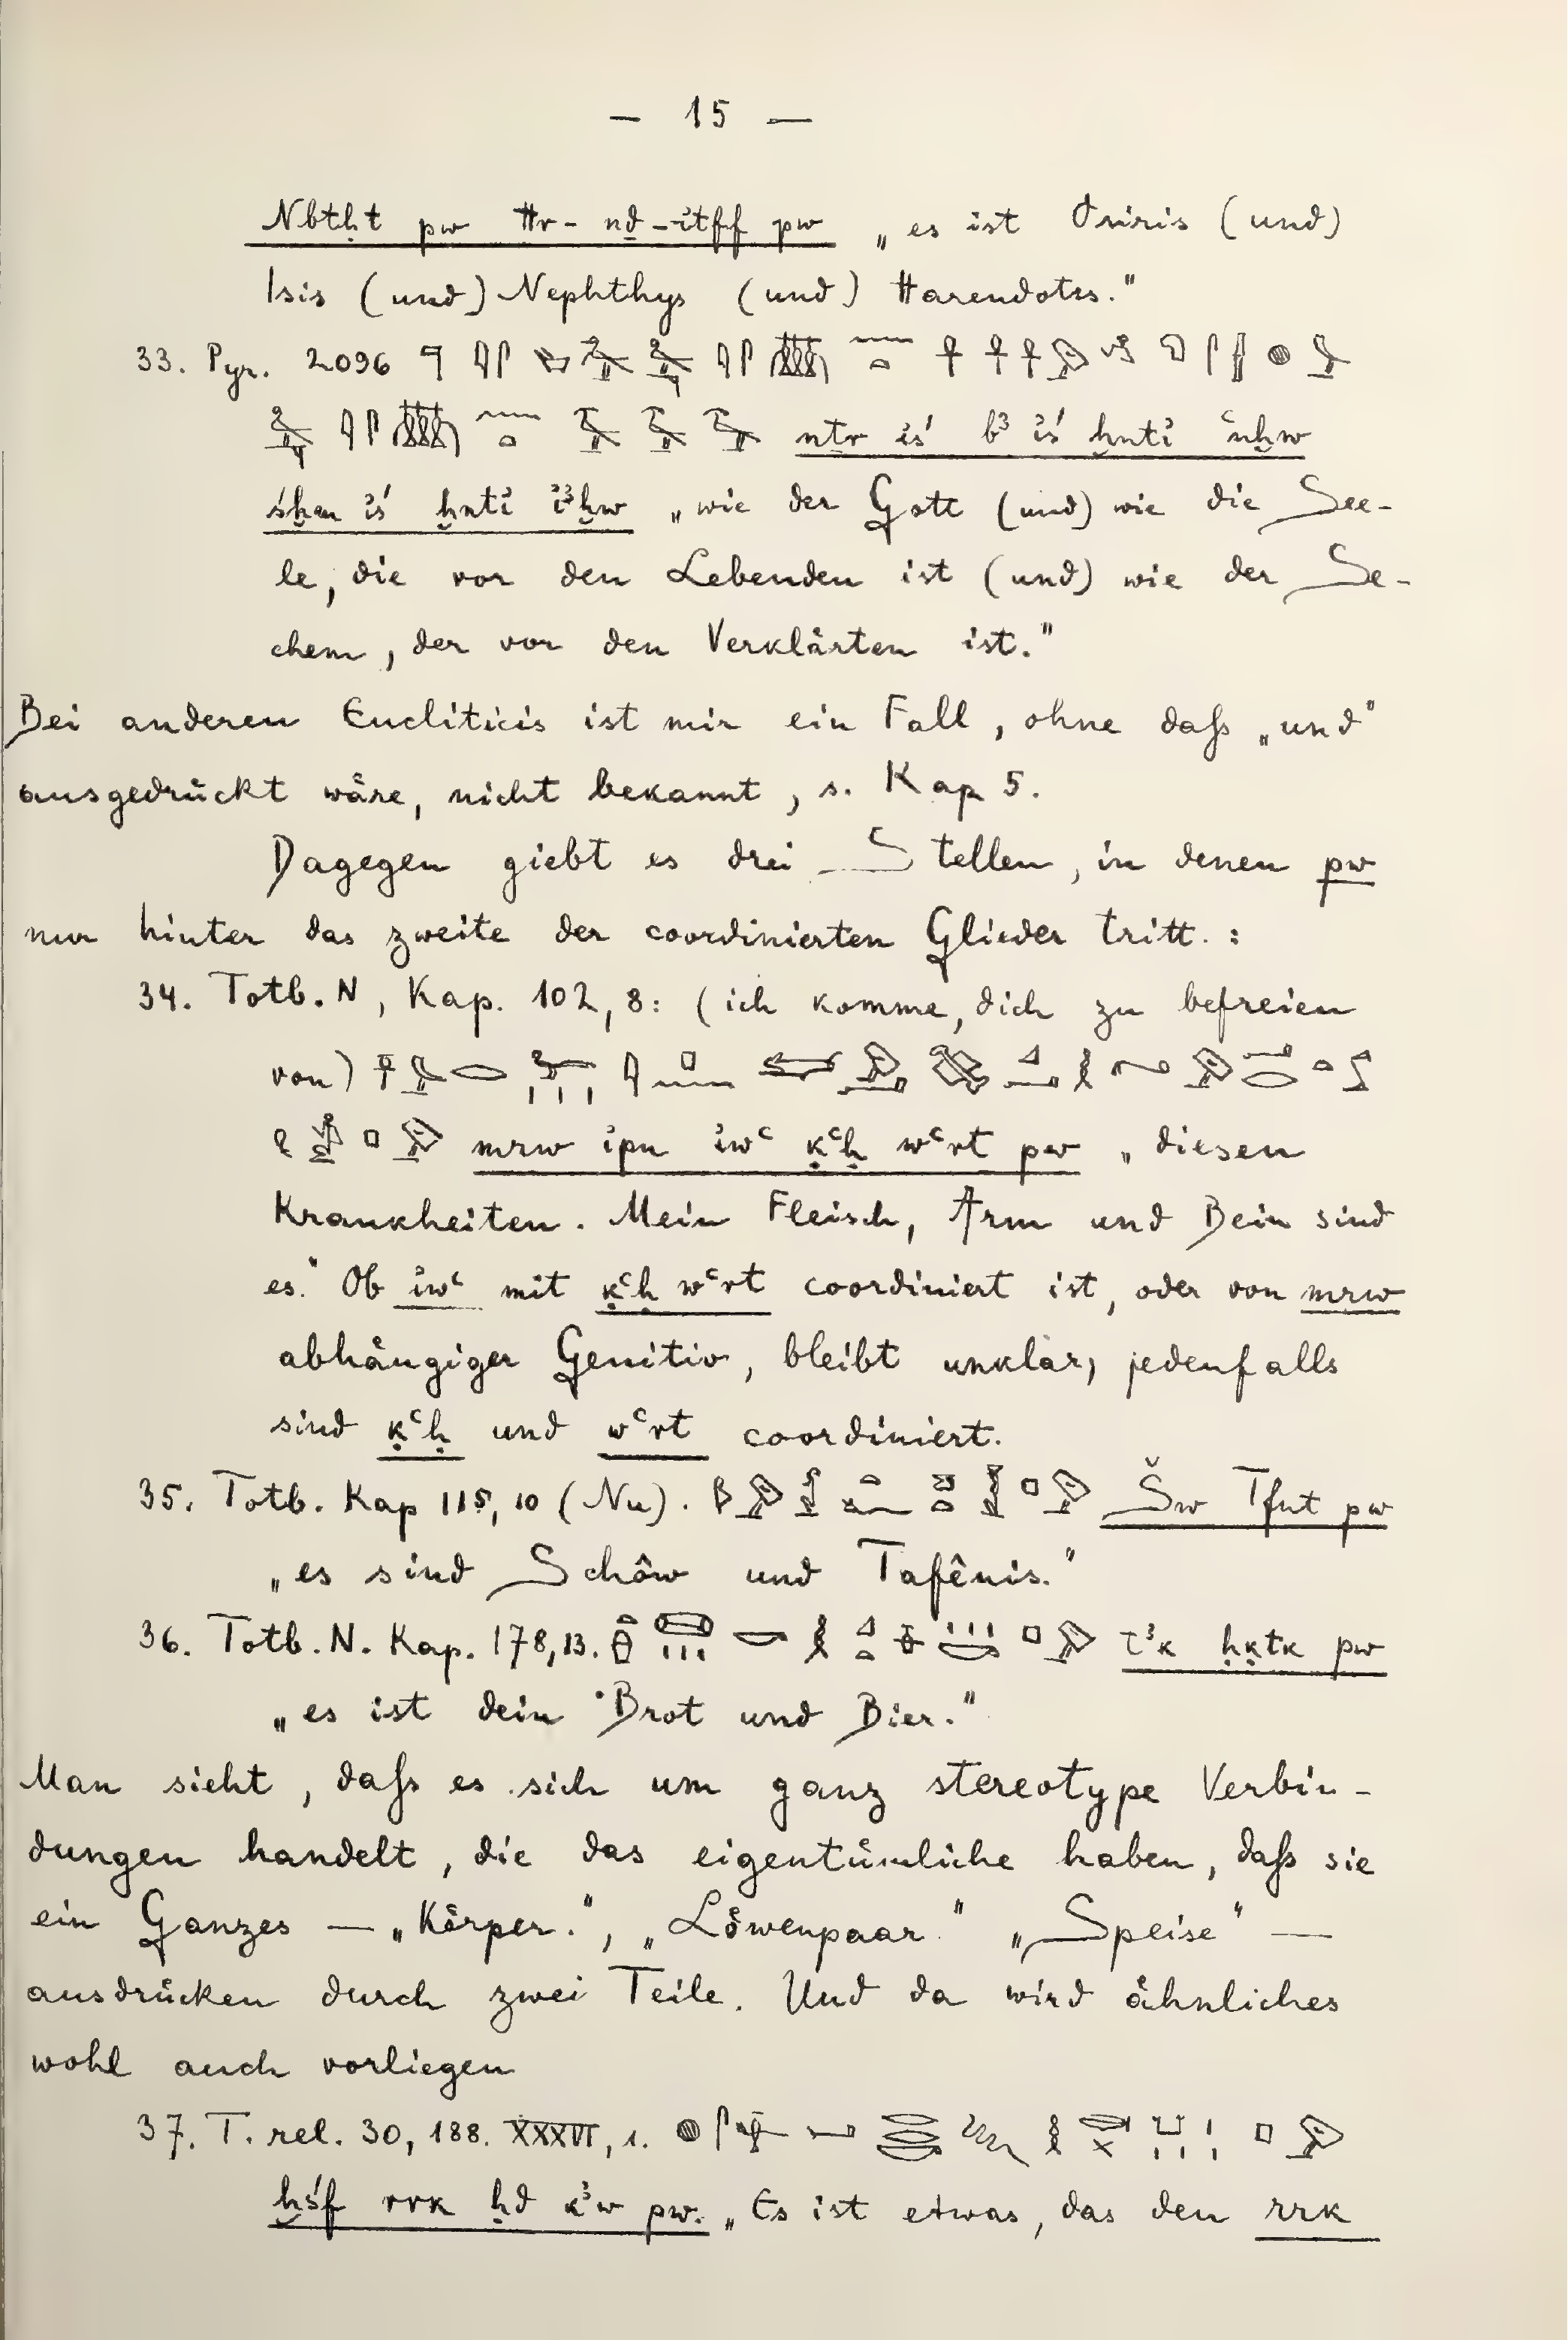 — 15 —
Nbtḥt pw Ḥr-nḏ-ı͗tff pw „es ist Osiris (und)
Isis (und) Nephthys (und) Harendotes."
33. Pyr. 2096
nṯr ı͗ś bꜣ ı͗ś ḫntı͗ ꜥnḫw
śḫm ı͗ś ḫntı͗ ı͗ꜣḫw „wie der Gott (und) wie die See-
le, die vor den Lebenden ist (und) wie der Se-
chem, der vor den Verklärten ist."
Bei anderen Encliticis ist mir ein Fall, ohne daß „und"
ausgedrückt wäre, nicht bekannt, s. Kap 5.
Dagegen giebt es drei Stellen, in denen pw
nur hinter das zweite der coordinierten Glieder tritt. :
34. Totb. N, Kap. 102, 8: (ich komme, dich zu befreien
von)
mrw ı͗pn ı͗wꜥ ḳꜥḥ wꜥrt pw „diesen
Krankheiten. Mein Fleisch, Arm und Bein sind
es." Ob ı͗wꜥ mit ḳꜥḥ wꜥrt coordiniert ist, oder von mrw
abhängiger Genitiv, bleibt unklar, jedenfalls
sind ḳꜥḥ und wꜥrt coordiniert.
35. Totb. Kap 115, 10 (Nu). Šw Tfnt pw
„es sind Schôw und Tafênis."
36. Totb. N. Kap. 178, 13. tꜣk ḥḳtk pw
„es ist dein Brot und Bier."
Man sieht, daß es sich um ganz stereotype Verbin-
dungen handelt, die das eigentümliche haben, daß sie
ein Ganzes — „Körper.", „Löwenpaar" „Speise" —
ausdrücken durch zwei Teile. Und da wird ähnliches
wohl auch vorliegen
37. T. rel. 30, 188. XXXVI, 1.
ḫśf rrk ḥḏ kꜣw pw. „Es ist etwas, das den rrk